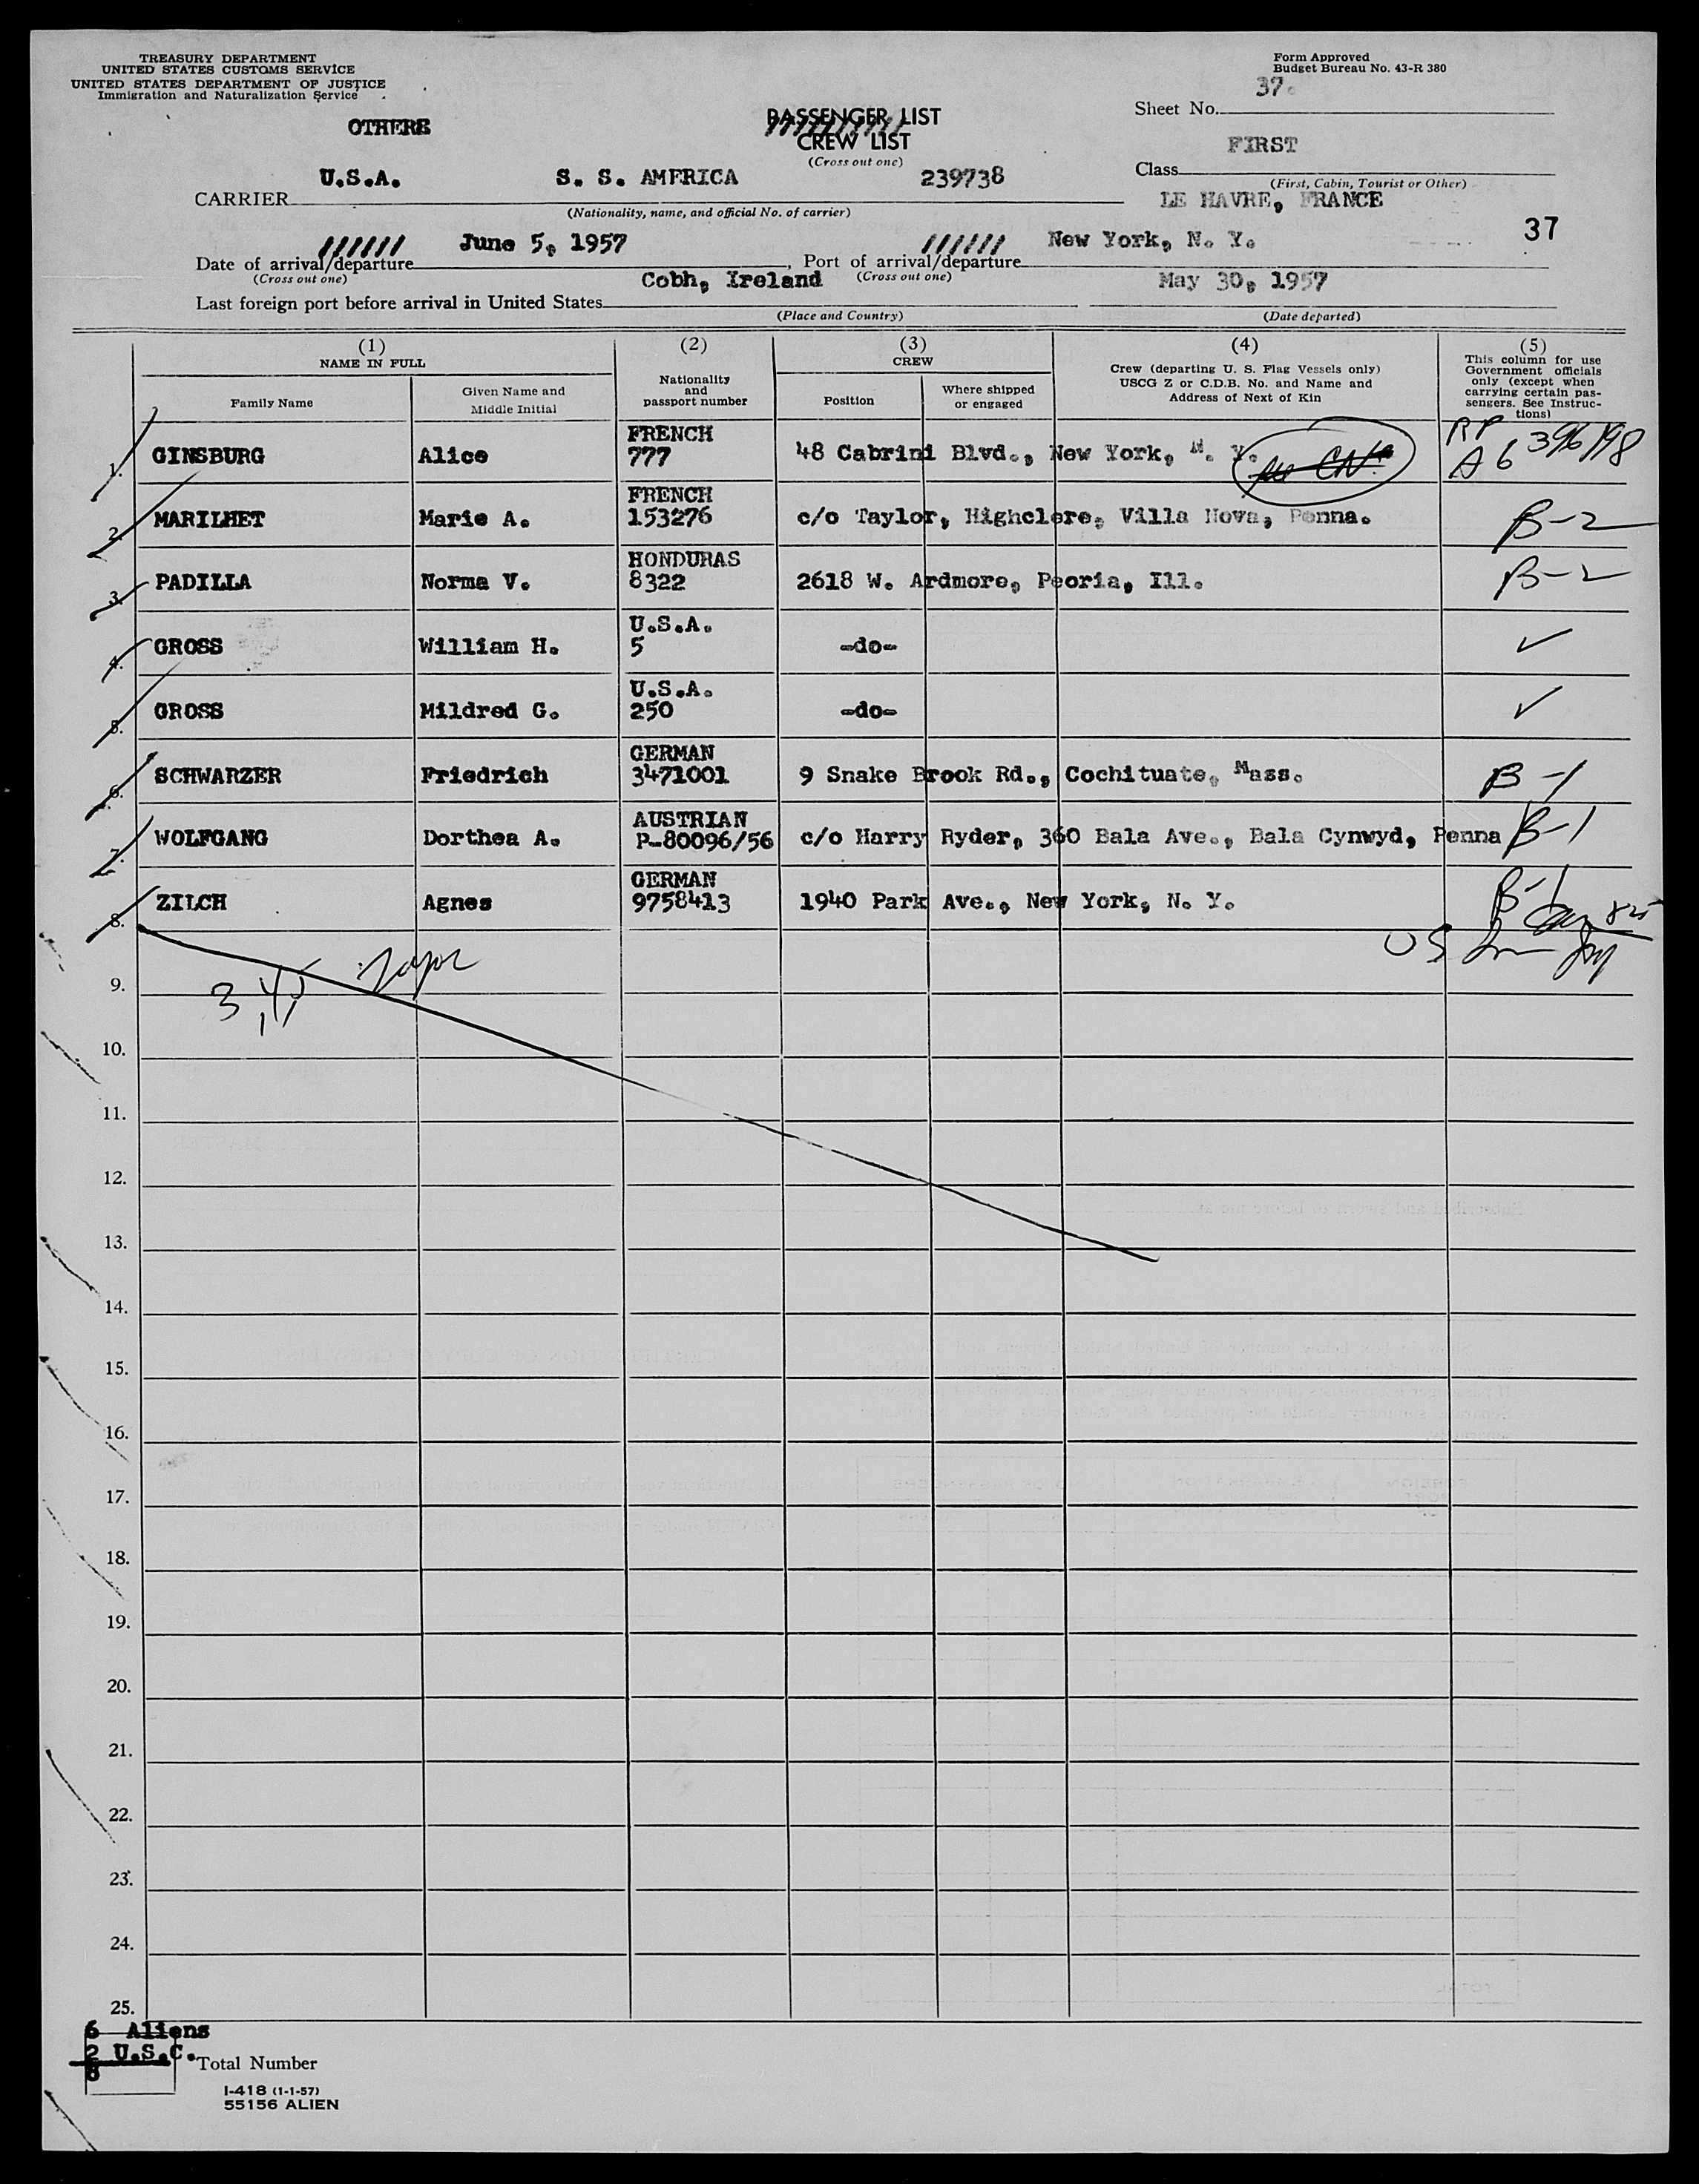 TREASURY DEPARTMENT
UNITED STATES CUSTOMS SERVICE
UNITED STATES DEPARTMENT OF JUSTICE
Immigration and Naturalization Service
Form Approved
Budget Bureau No. 43-R 380
37.
Sheet No.
OTHERS
PASSENGER LIST
CREW LIST
(Cross out one)
FIRST
Class
(First, Cabin, Tourist or Other)
U.S.A. S. S. AMERICA 239738
CARRIER
(Nationality, name, and official No. of carrier)
LE HAVRE, FRANCE
37
June 5, 1957 New York, N. Y.
Date of arrival/departure, Port of arrival/departure
(Cross out one) (Cross out one)
Cobh, Ireland May 30, 1957
Last foreign port before arrival in United States
(Place and Country) (Date departed)
(1) (2) (3) (4) (5)
NAME IN FULL
Family Name
Given Name and
Middle Initial
Nationality
and
passport number
CREW
Position
Where shipped
or engaged
Crew (departing U. S. Flag Vessels only)
USCG Z or C.D.B. No. and Name and
Address of Next of Kin
This column for use
Government officials
only (except when
carrying certain pas-
sengers. See Instruc-
tions)
FRENCH RP
1. GINSBURG Alice 777 48 Cabrini Blvd., New York, N. Y. A6 396198
FRENCH
2. MARILHET Marie A. 153276 c/o Taylor, Highclere, Villa Nova, Penna. B-2
HONDURAS
3. PADILLA Norma V. 8322 2618 W. Ardmore, Peoria, Ill. B-2
U.S.A.
4. GROSS William H. 5 -do- ✓
U.S.A.
5. GROSS Mildred G. 250 -do- ✓
GERMAN
6. SCHWARZER Friedrich 3471001 9 Snake Brook Rd., Cochituate, Mass. B-1
AUSTRIAN
7. WOLFGANG Dorthea A. P-80096/56 c/o Harry Ryder, 360 Bala Ave., Bala Cynwyd, Penna B-1
GERMAN
8. ZILCH Agnes 9758413 1940 Park Ave., New York, N. Y. B-1
US
9.
10.
11.
12.
13.
14.
15.
16.
17.
18.
19.
20.
21.
22.
23.
24.
25.
6 Aliens
2 U.S.C.
8
Total Number
I-418 (1-1-57)
55156 ALIEN